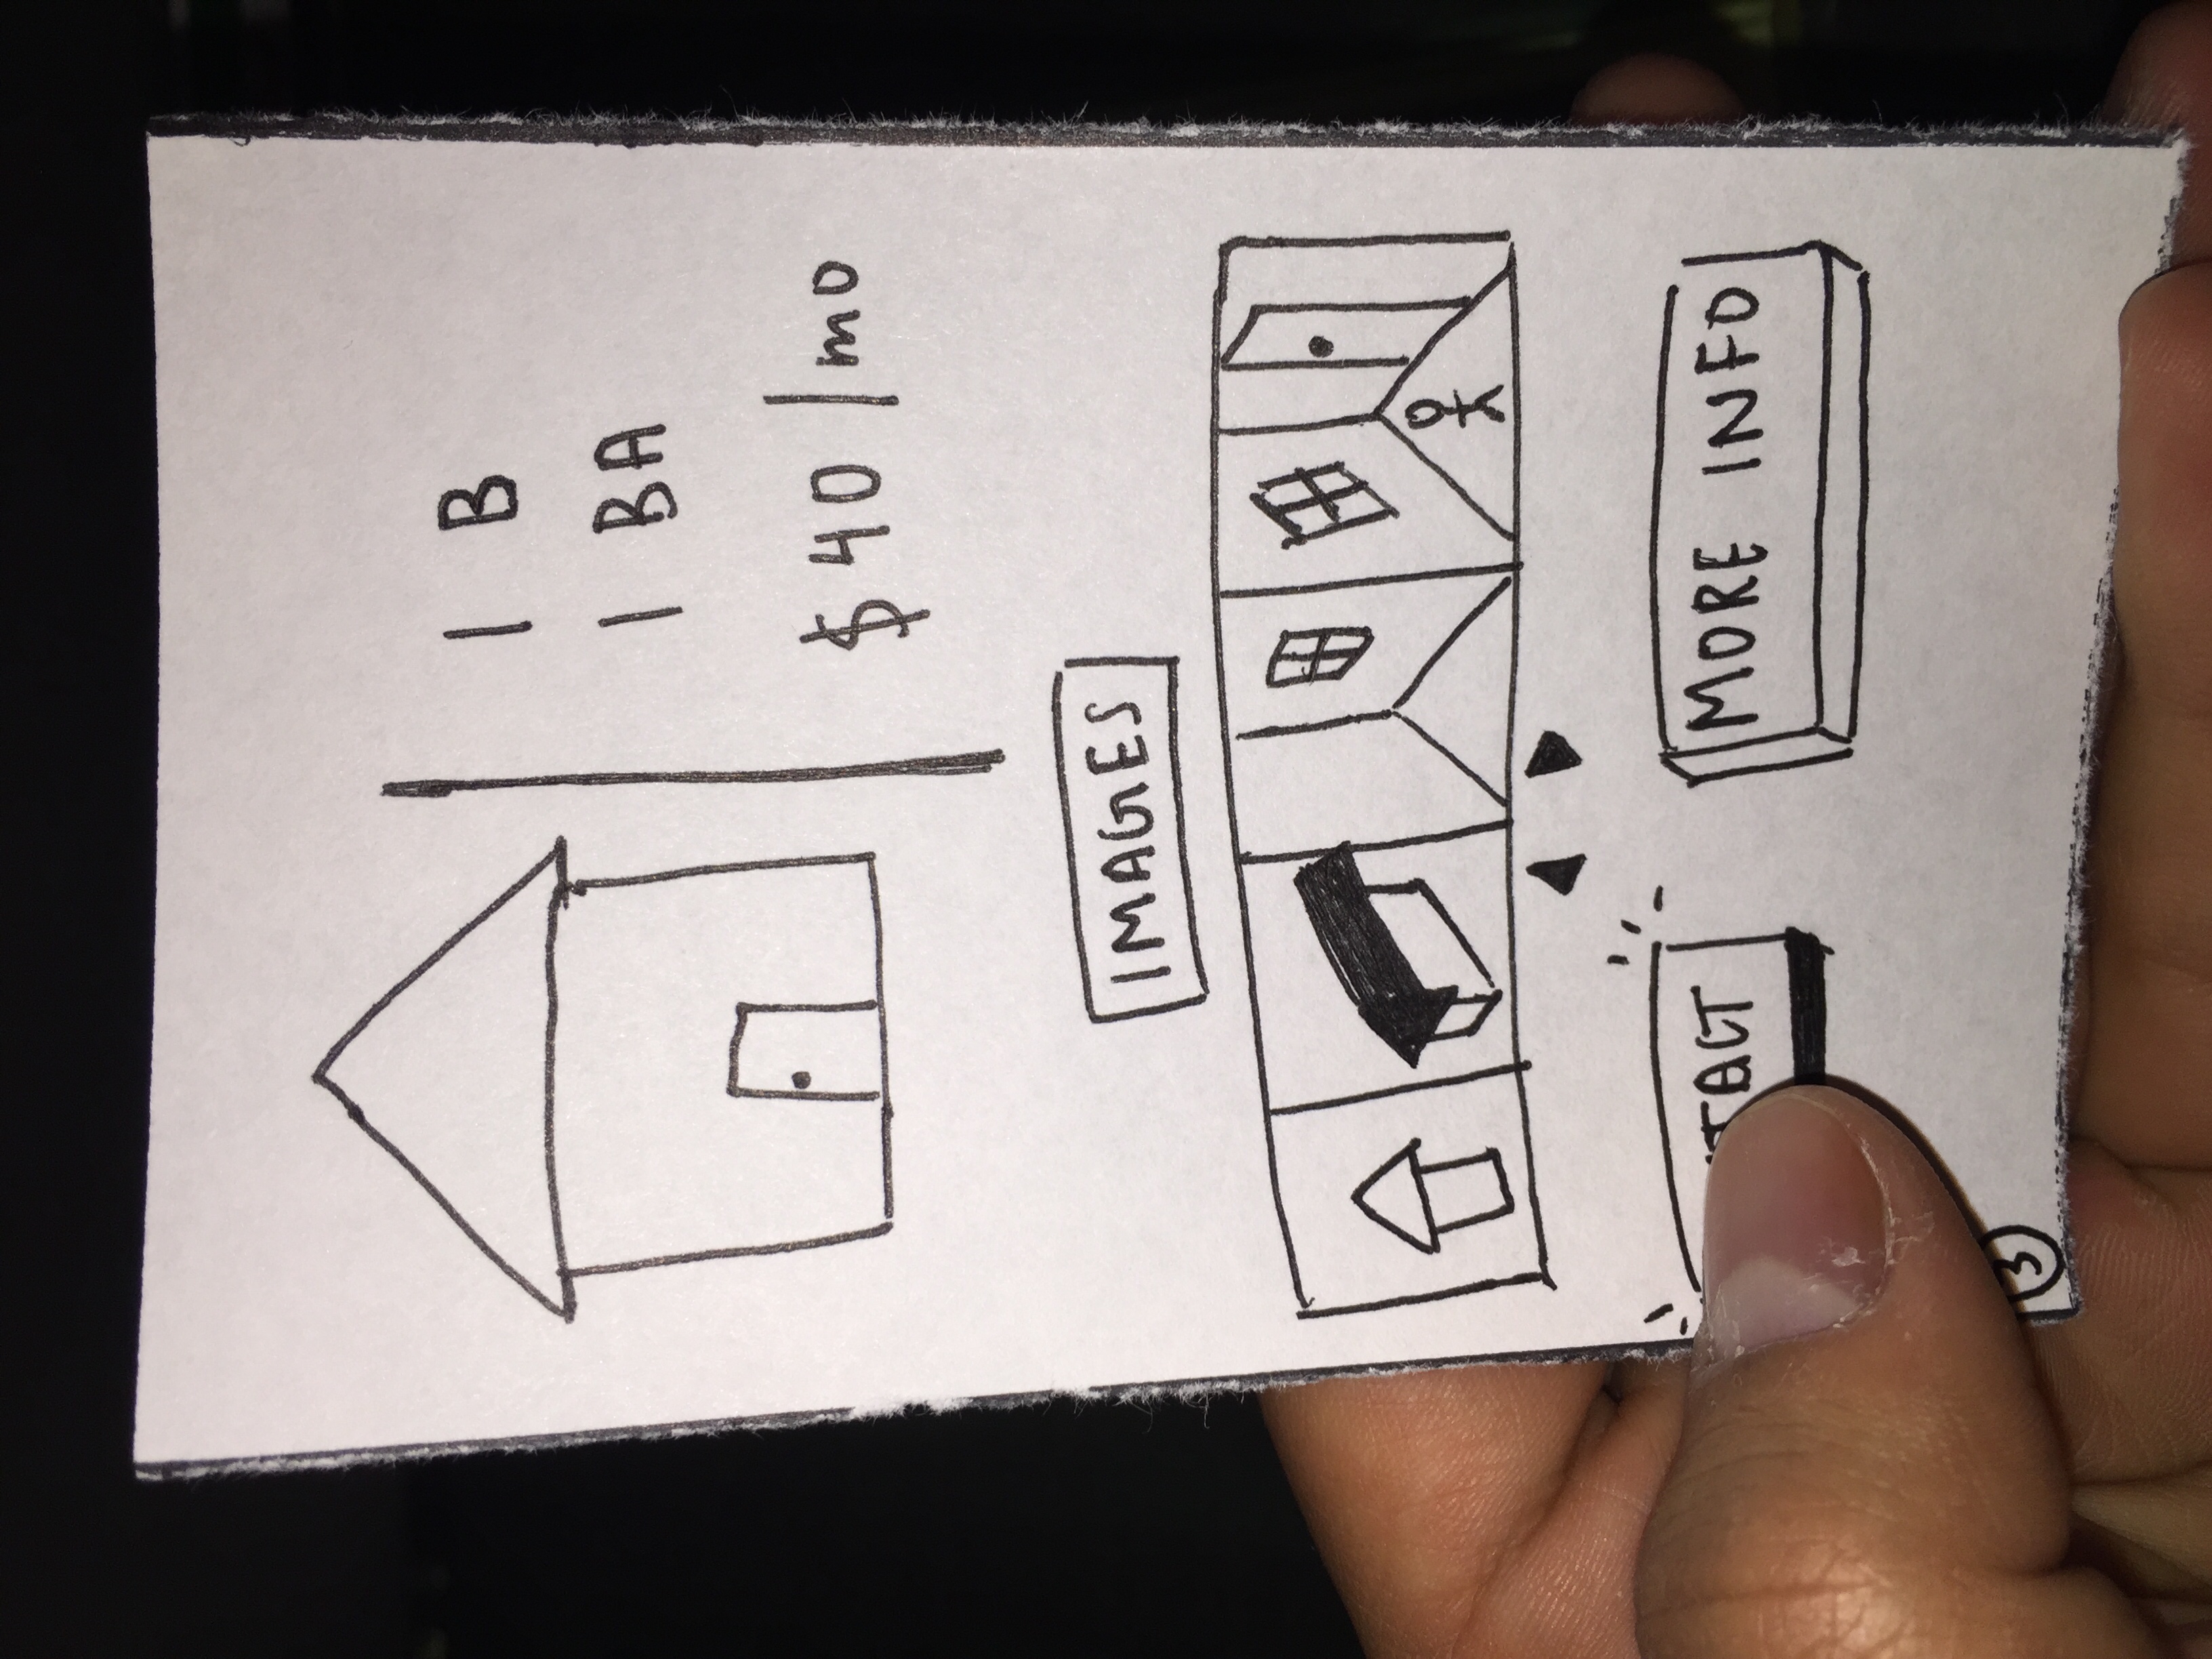 1 B
1 BA
$40/mo
IMAGES
MORE INFO
3